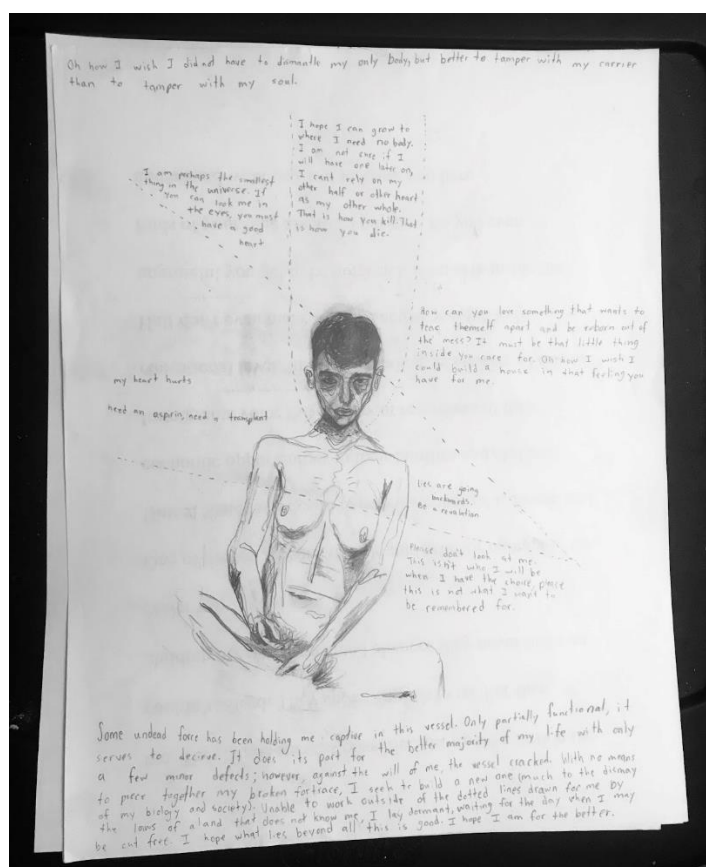 Oh how I wish I did not have to dismantle my only body, but better to tamper with my carrier
than to tamper with my soul.
I hope I can grow to
where I need no body.
I am not sure if I
will have one later on,
I cant rely on my
other half or other heart
as my other whole.
That is how you kill. That
is how you die.
I am perhaps the smallest
thing in the universe. If
you can look me in
the eyes, you must
have a good
heart
How can you love something that wants to
tear themself apart and be reborn out of
the mess? It must be that little thing
inside you care for. Oh how I wish I
could build a house in that feeling you
have for me.
my heart hurts
need an asprin, need a transplant
lies are going
backwards.
Be a revolution
Please don't look at me.
This isn't who I will be
when I have the choice, please
this is not what I want to
be remembered for.
Some undead force has been holding me captive in this vessel. Only partially functional, it
serves to decieve. It does its part for the better majority of my life with only
a few minor defects; however, against the will of me, the vessel cracked. With no means
to piece together my broken fortrace, I seek to build a new one (much to the dismay
of my biology and society). Unable to work outside of the dotted lines drawn for me by
the laws of a land that does not know me, I lay dormant, waiting for the day when I may
be cut free. I hope what lies beyond all this is good. I hope I am for the better.